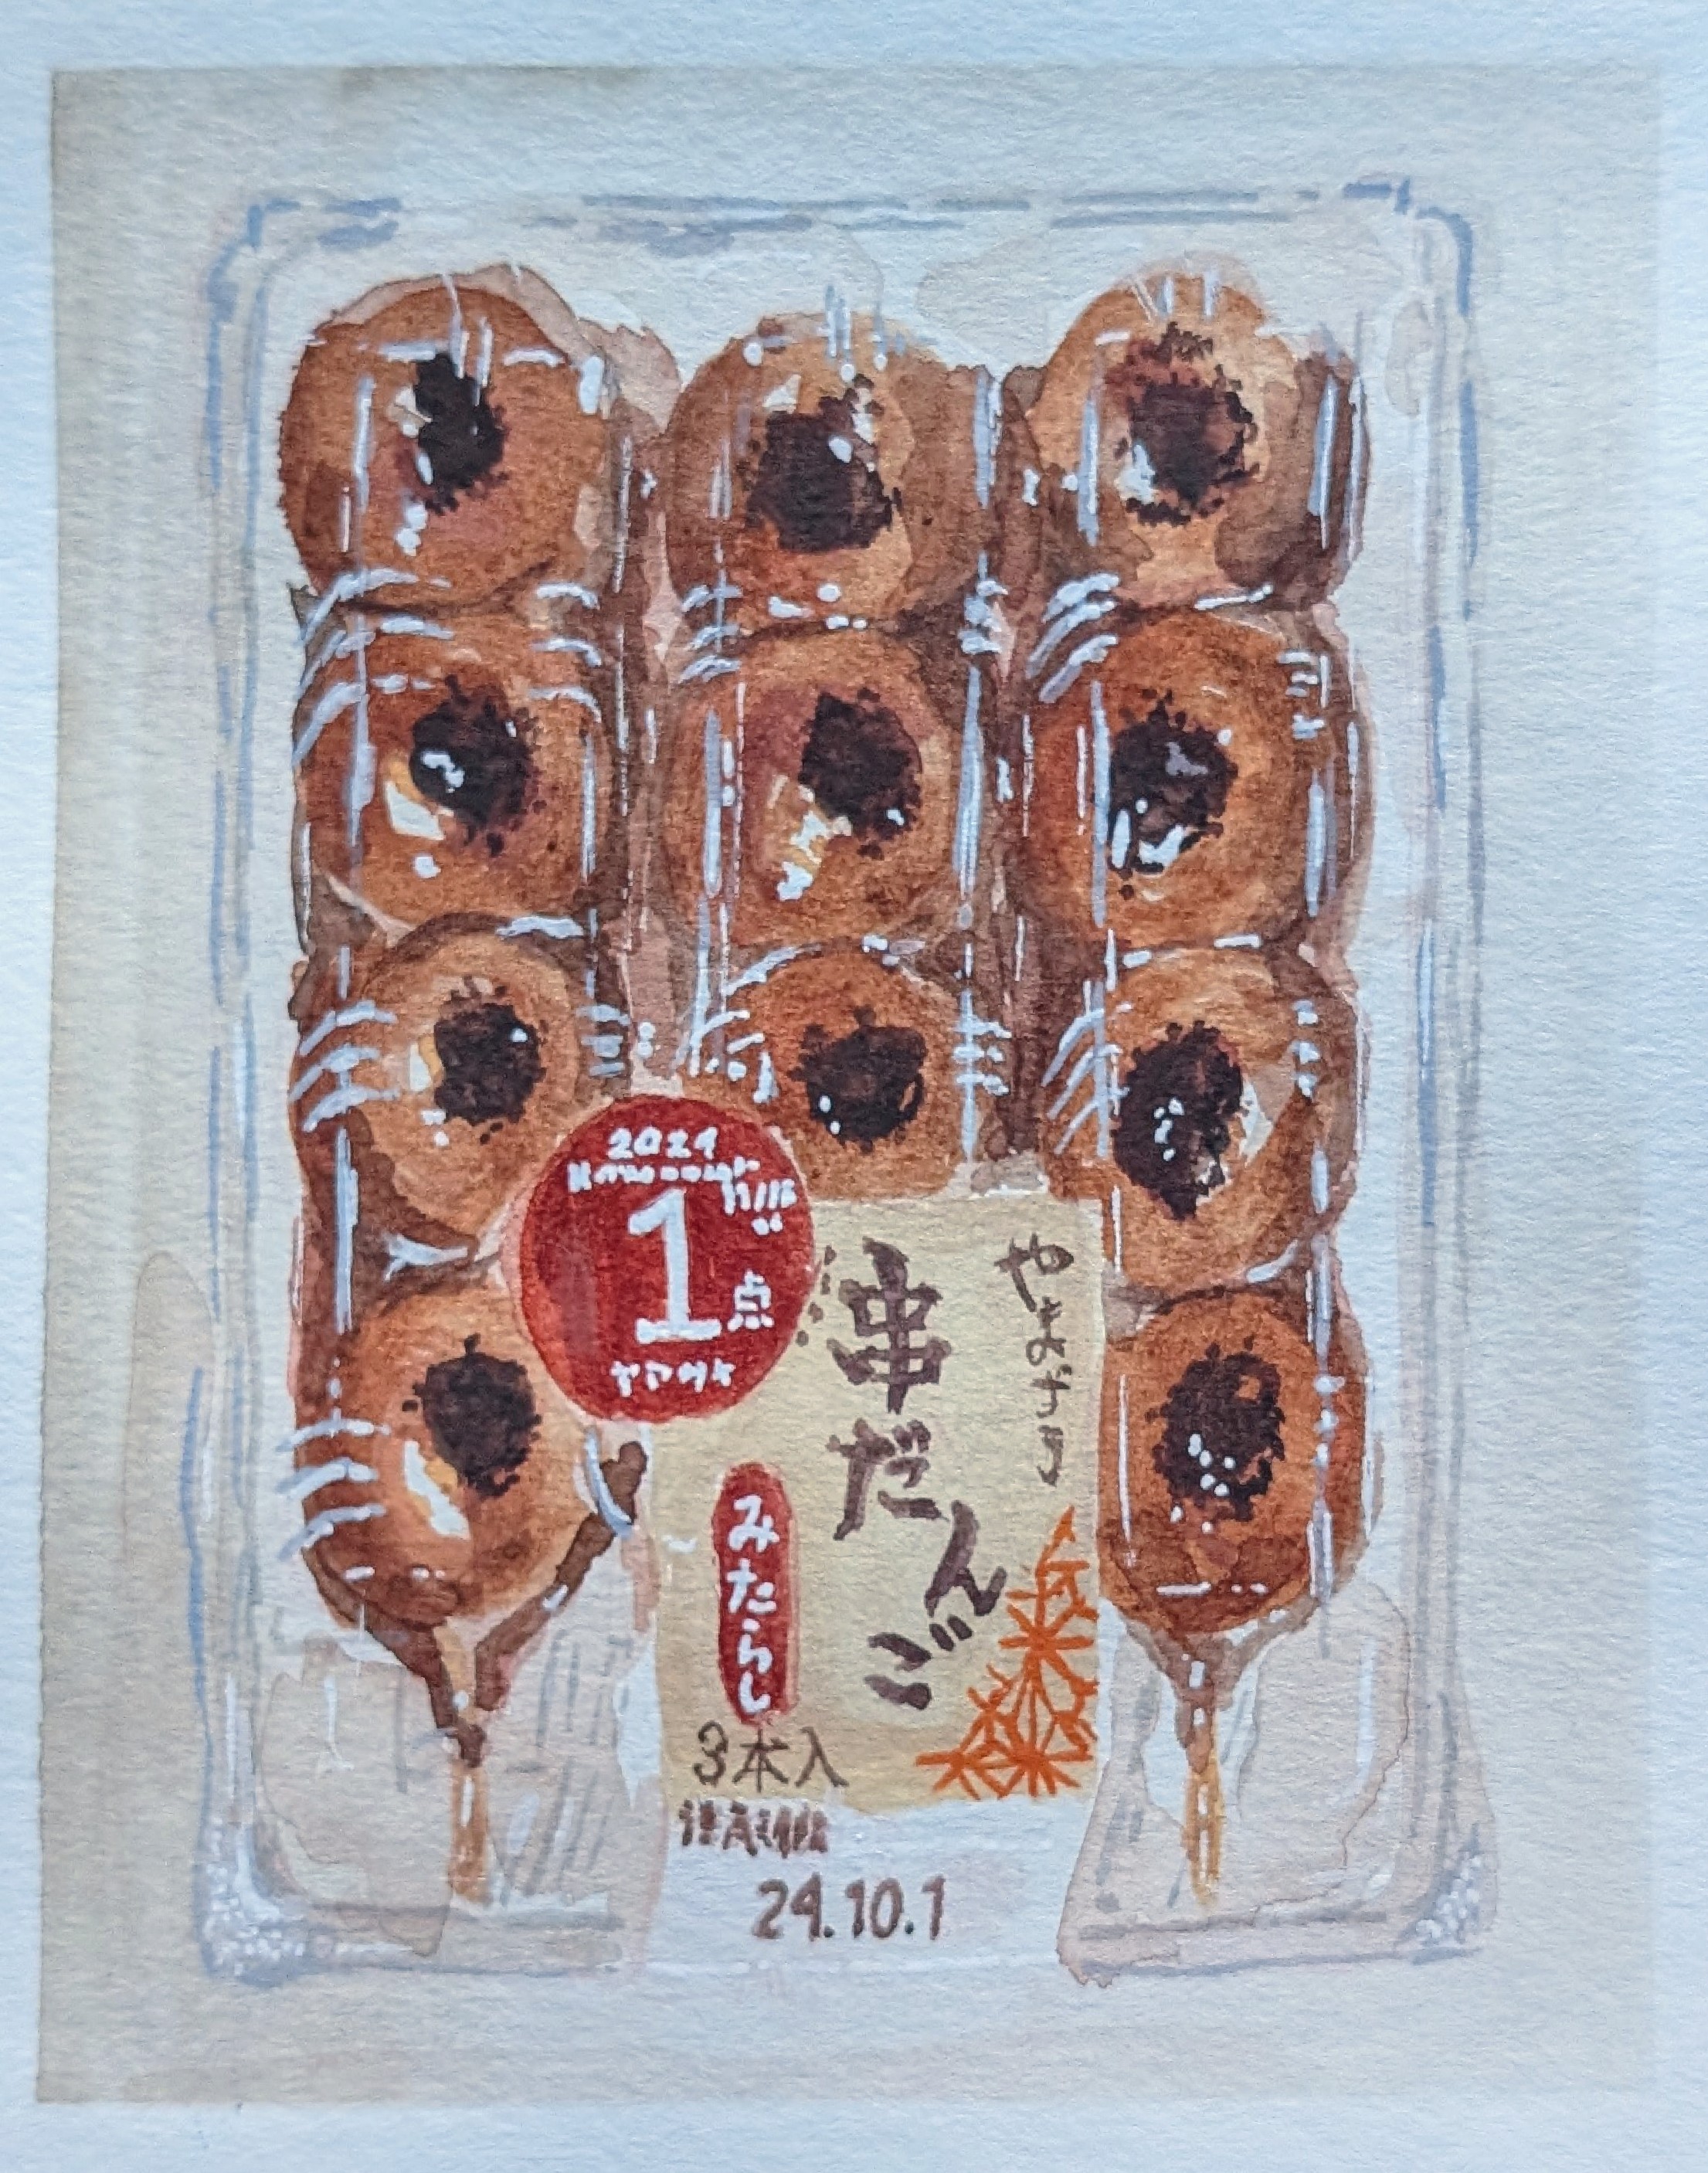 2024
1点
ヤマザキ
やまざき
串だんご
みたらし
3本入
24.10.1